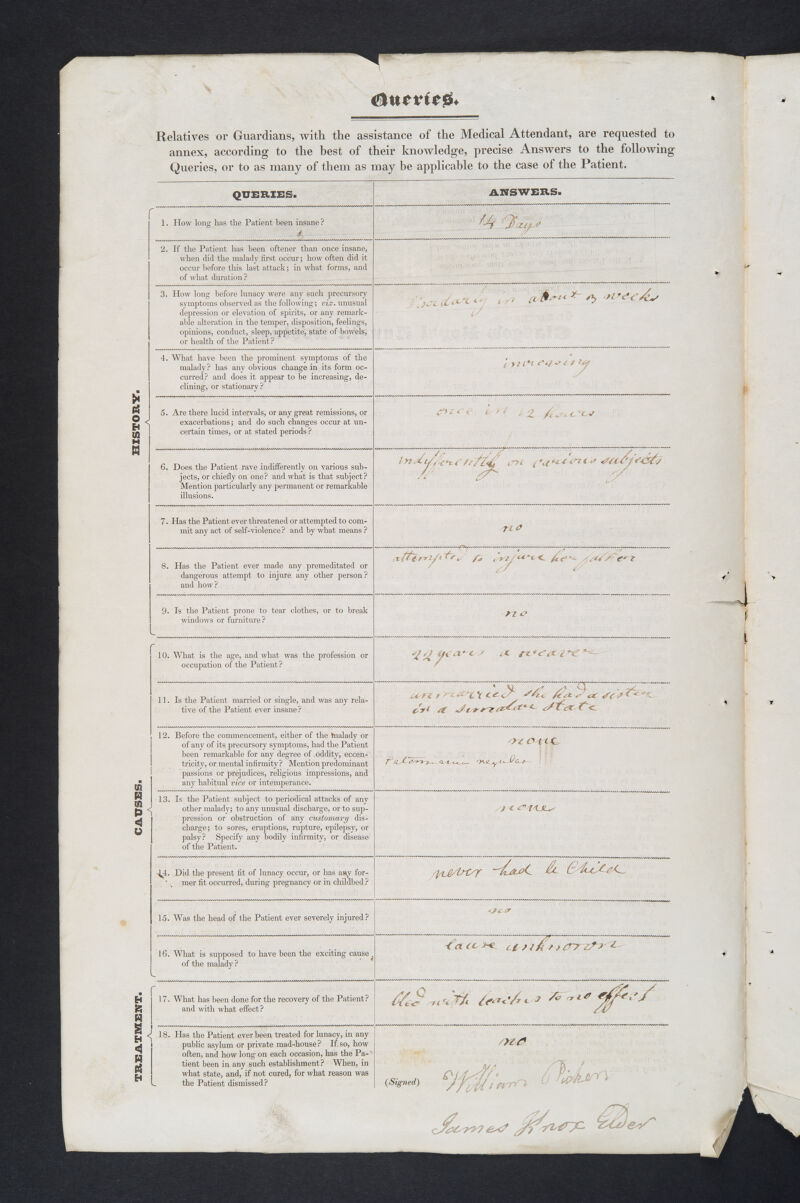 Queries.
Relatives or Guardians, with the assistance of the Medical Attendant, are requested to
annex, according to the best of their knowledge, precise Answers to the following
Queries, or to as many of them as may be applicable to the case of the Patient.
QUERIES.
ANSWERS.
HISTORY.
1. How long has the Patient been insane?
14 Days
2. If the Patient has been oftener than once insane,
when did the malady first occur; how often did it
occur before this last attack; in what forms, and
of what duration?
3. How long before lunacy were any such precursory
symptoms observed as the following; viz. unusual
depression or elevation of spirits, or any remark-
able alteration in the temper, disposition, feelings,
opinions, conduct, sleep, appetite, state of bowels,
or health of the Patient?
in about 3 weeks
4. What have been the prominent symptoms of the
malady? has any obvious change in its form oc-
curred? and does it appear to be increasing, de-
clining, or stationary?
increasing
5. Are there lucid intervals, or any great remissions, or
exacerbations; and do such changes occur at un-
certain times, or at stated periods?
once in 12 hours
6. Does the Patient rave indifferently on various sub-
jects, or chiefly on one? and what is that subject?
Mention particularly any permanent or remarkable
illusions.
indifferently on various subjects
7. Has the Patient ever threatened or attempted to com-
mit any act of self-violence? and by what means?
no
8. Has the Patient ever made any premeditated or
dangerous attempt to injure any other person?
and how?
attempted to injure her father
9. Is the Patient prone to tear clothes, or to break
windows or furniture?
no
CAUSES.
10. What is the age, and what was the profession or
occupation of the Patient?
22 years a weaver
11. Is the Patient married or single, and was any rela-
tive of the Patient ever insane?
unmarried she had a sister
in a simelar state
12. Before the commencement, either of the malady or
of any of its precursory symptoms, had the Patient
been remarkable for any degree of oddity, eccen-
tricity, or mental infirmity? Mention predominant
passions or prejudices, religious impressions, and
any habitual vice or intemperance.
none
regular
13. Is the Patient subject to periodical attacks of any
other malady; to any unusual discharge, or to sup-
pression or obstruction of any customary dis-
charge; to sores, eruptions, rupture, epilepsy, or
palsy? Specify any bodily infirmity, or disease
of the Patient.
none
14. Did the present fit of lunacy occur, or has any for-
mer fit occurred, during pregnancy or in childbed?
never had a Child
15. Was the head of the Patient ever severely injured?
no
16. What is supposed to have been the exciting cause
of the malady?
cause unknown
TREATMENT.
17. What has been done for the recovery of the Patient?
and with what effect?
bled with leaches to no effect
18. Has the Patient ever been treated for lunacy, in any
public asylum or private mad-house? If so, how
often, and how long on each occasion, has the Pa-
tient been in any such establishment? When, in
what state, and, if not cured, for what reason was
the Patient dismissed?
no
(Signed) William Picken
James Knox Elder